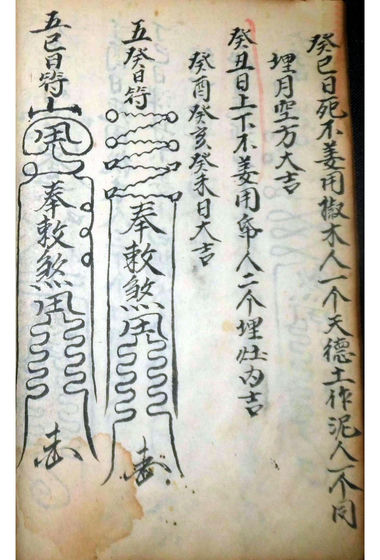 癸巳日死不姜用椒木人一个天德土作泥人一个同
埋月空方大吉
癸丑日上下不姜用帛人二个埋灶内吉
癸酉癸亥癸未日大吉
五癸日符
奉敕煞
五巳日符
奉敕煞